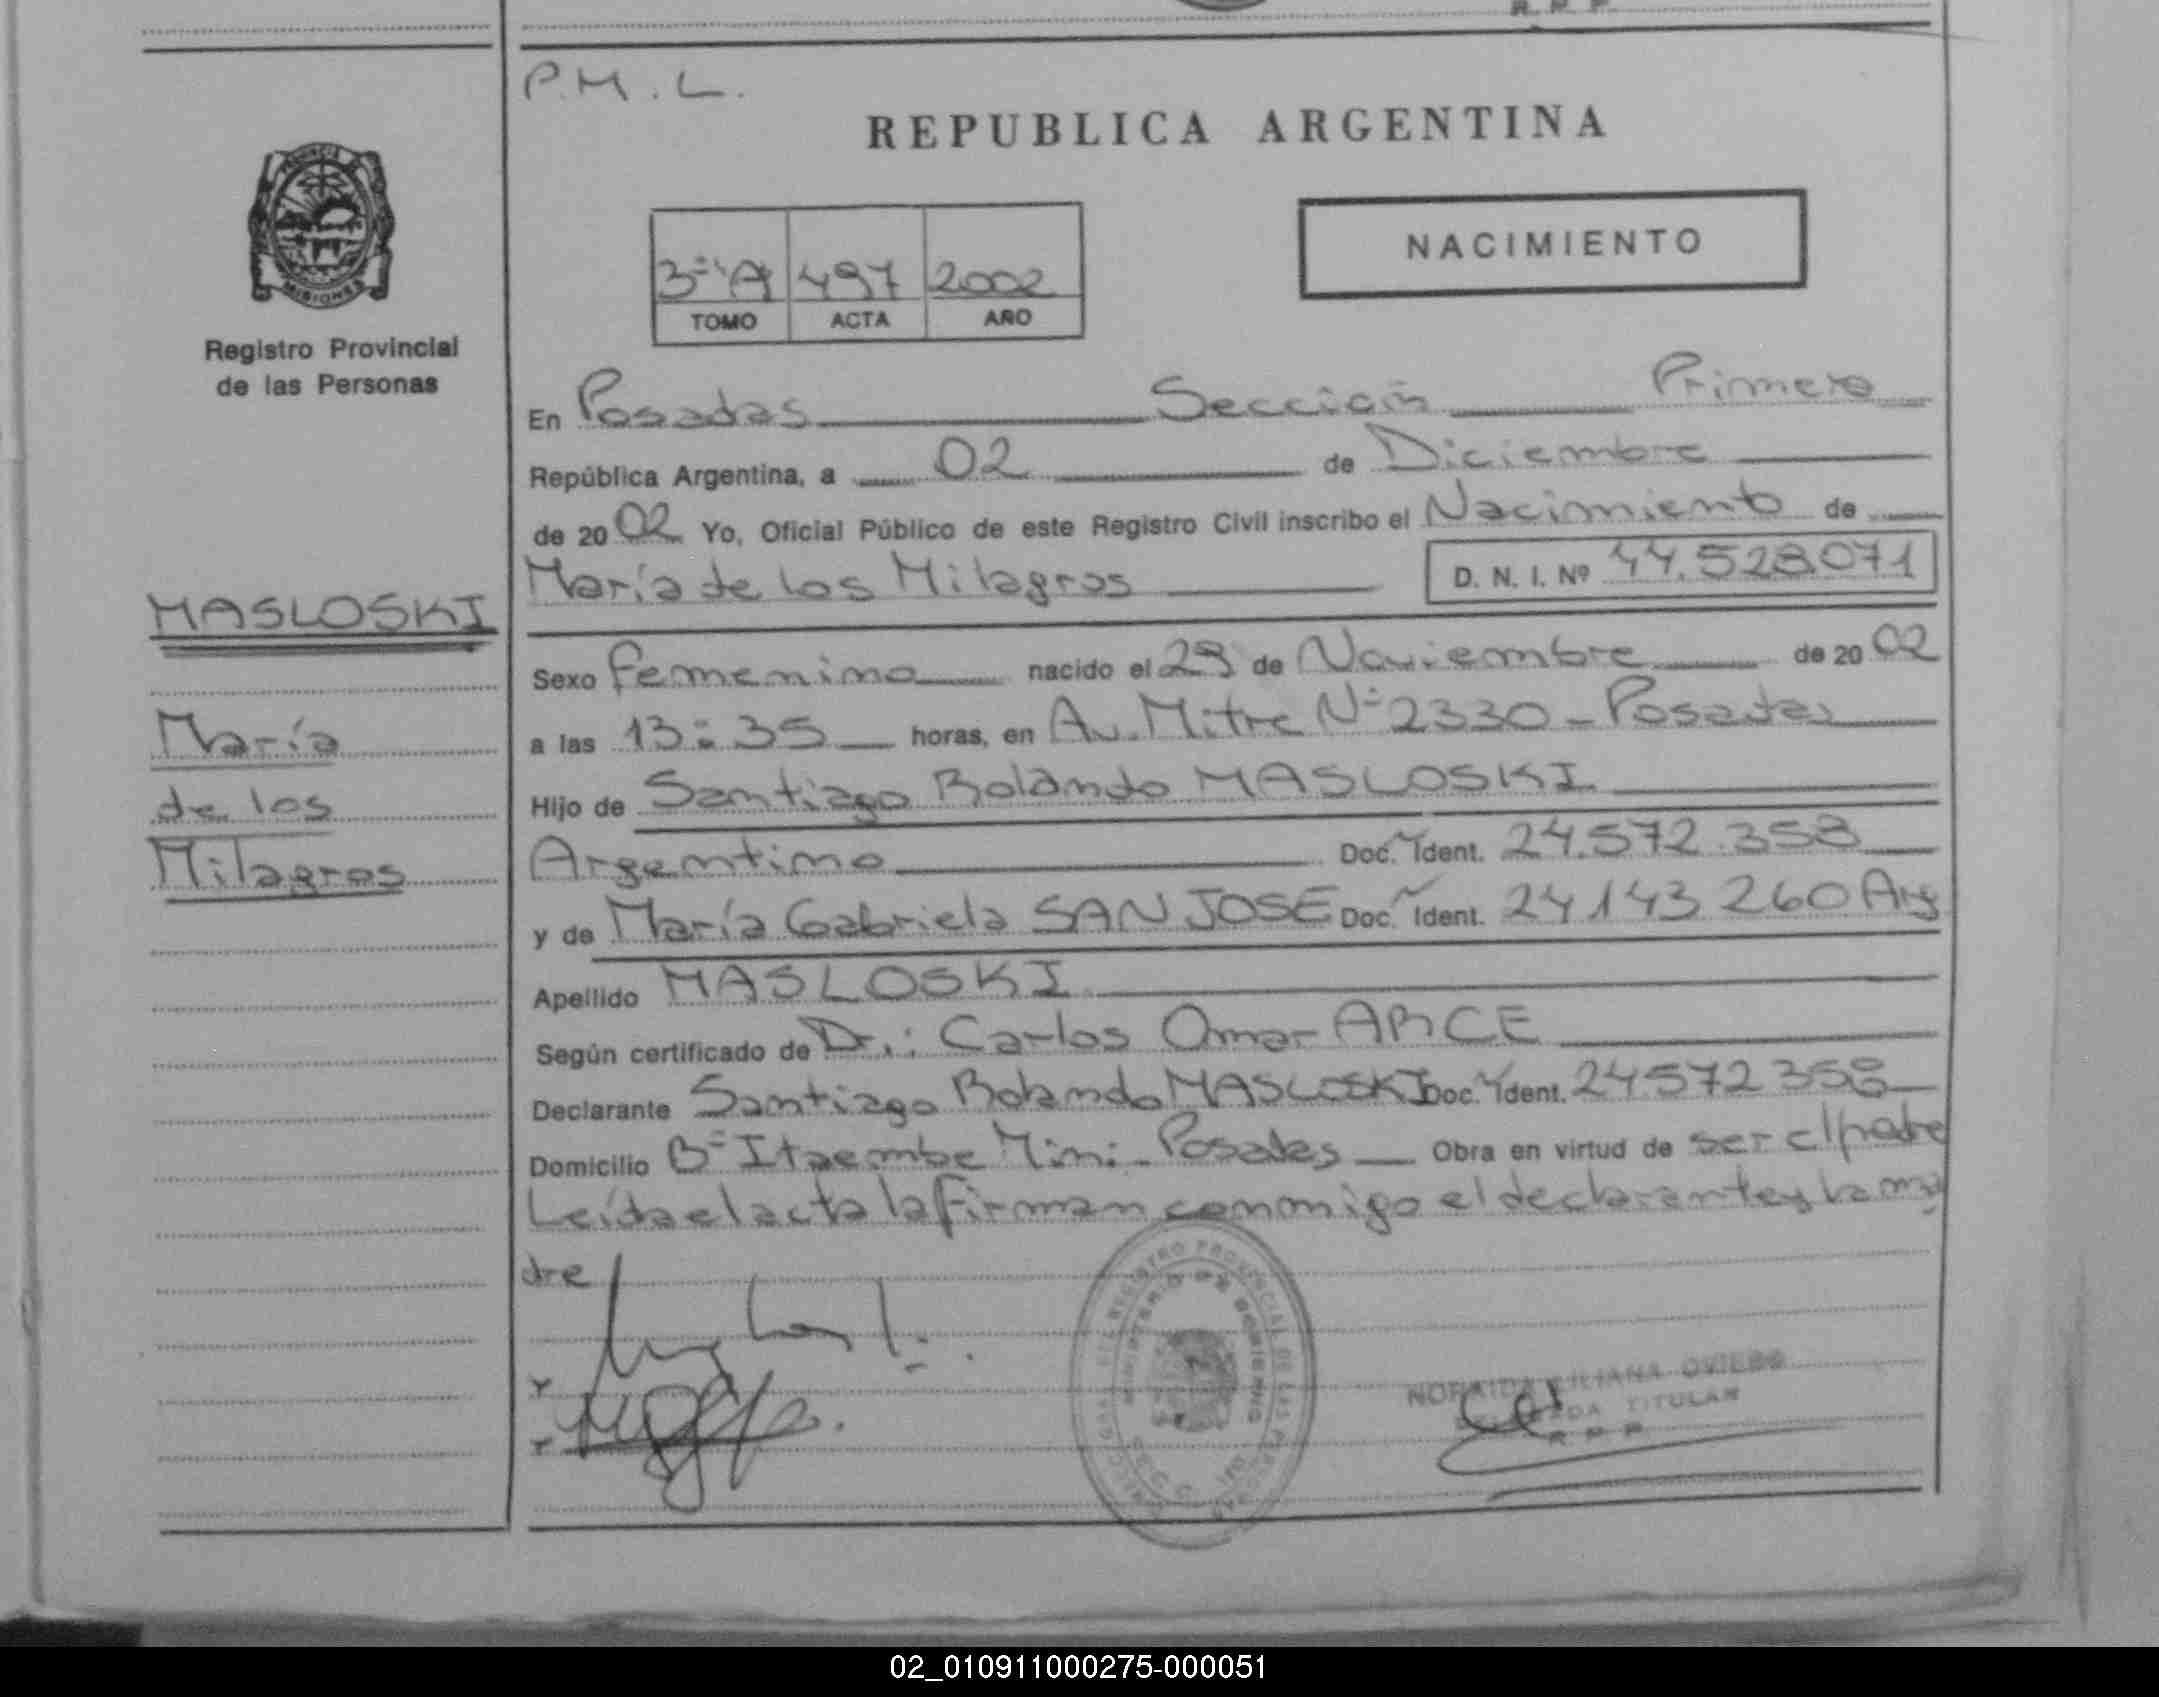 R. P. P.
P.M.L.
REPUBLICA ARGENTINA
PROVINCIA DE
MISIONES
Registro Provincial
de las Personas
NACIMIENTO
3º "A" 497 2002
TOMO ACTA AÑO
En Posadas Sección Primera
República Argentina, a 02 de Diciembre
de 2002 Yo, Oficial Público de este Registro Civil inscribo el Nacimiento de
María de los Milagros D. N. I. Nº 44.528.071
MASLOSKI
María
de los
Milagros
Sexo femenino nacido el 29 de Noviembre de 2002
a las 13:35 horas, en Av. Mitre Nº 2330 - Posadas
Hijo de Santiago Rolando MASLOSKI
Argentino Doc. Ident. 24.572.358
y de María Gabriela SAN JOSE Doc. Ident. 24.143.260 Arg
Apellido MASLOSKI
Según certificado de Dr.: Carlos Omar ARCE
Declarante Santiago Rolando MASLOSKI Doc. Ident. 24.572.358
Domicilio Bº Itaembe Mini - Posadas Obra en virtud de ser el padre
Leída el acta la firman conmigo el declarante y la ma
dre
REGISTRO PROVINCIAL DE LAS PERSONAS
MINISTERIO DE GOBIERNO
NORAIDA LILIANA OVIEDO
DELEGADA TITULAR
R P P
02_010911000275-000051